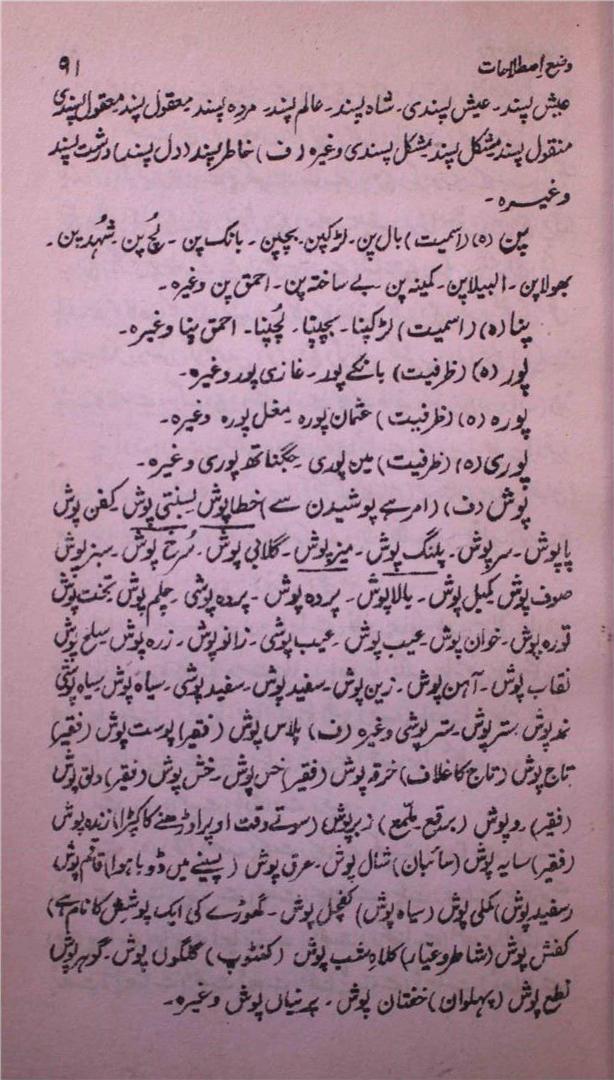 وضع اصطلاحات ۹۱
عیش پسند۔ عیش پسندی۔ شاہ پسند۔ عالم پسند۔ مردہ پسند معقول پسند معقول پسندی
منقول پسند مشکل پسند مشکل پسندی وغیرہ (ف) خاطر پسند (دل پسند) درشت پسند
وغیرہ۔
پن (ہ) (اسمیت) بال پن۔ لڑکپن۔ بچپن۔ بانک پن۔ لُچ پن۔ شُہدپن۔
بھولا پن۔ البیلا پن۔ کمینہ پن۔ بے ساختہ پن۔ احمق پن وغیرہ۔
پنا (ہ) (اسمیت) لڑکپنا۔ بچپنا۔ لُچپنا۔ احمق پنا وغیرہ۔
پور (ہ) (ظرفیت) بانکے پور۔ غازی پور وغیرہ۔
پورہ (ہ) (ظرفیت) عثمان پورہ مغل پورہ وغیرہ۔
پوری (ہ) (ظرفیت) مین پوری۔ جگناتھ پوری وغیرہ۔
پوش (ف) (امر ہے پوشیدن سے) خطا پوش بسنتی پوش۔ کفن پوش
پاپوش۔ سرپوش۔ پلنگ پوش۔ میز پوش۔ گلابی پوش۔ سُرخ پوش۔ سبز پوش
صوف پوش کمبل پوش۔ بالا پوش۔ پردہ پوش۔ پردہ پوشی۔ چلم پوش تخت پوش
تورہ پوش۔ خوان پوش۔ عیب پوش۔ عیب پوشی۔ زانو پوش۔ زرہ پوش سلح پوش
نقاب پوش۔ آہن پوش۔ زین پوش۔ سفید پوش۔ سفید پوشی۔ سیاہ پوش سیاہ پوشی
نمد پوش۔ ستر پوش۔ ستر پوشی وغیرہ (ف) پلاس پوش (فقیر) پوست پوش (فقیر)
تاج پوش (تاج کا غلاف) خرقہ پوش (فقیر) خس پوش۔ خش پوش (فقیر) دلق پوش
(فقیر) روپوش (برقع ملمع) زبرپوش (سوتے وقت اوپر اوڑھنے کا کپڑا) ژندہ پوش
(فقیر) سایہ پوش (سائبان) شال پوش۔ عرق پوش (پسینے میں ڈوبا ہوا) قاقم پوش
(سفید پوش) کحلی پوش (سیاہ پوش) کفچل پوش۔ گھوڑے کی ایک پوشش کا نام ہے)
کفش پوش (شاطر و عیار) کلاہ شب پوش (کنٹوپ) گلگوں پوش۔ گوہر پوش
نطع پوش (پہلوان) خفتان پوش۔ پرنیاں پوش وغیرہ۔